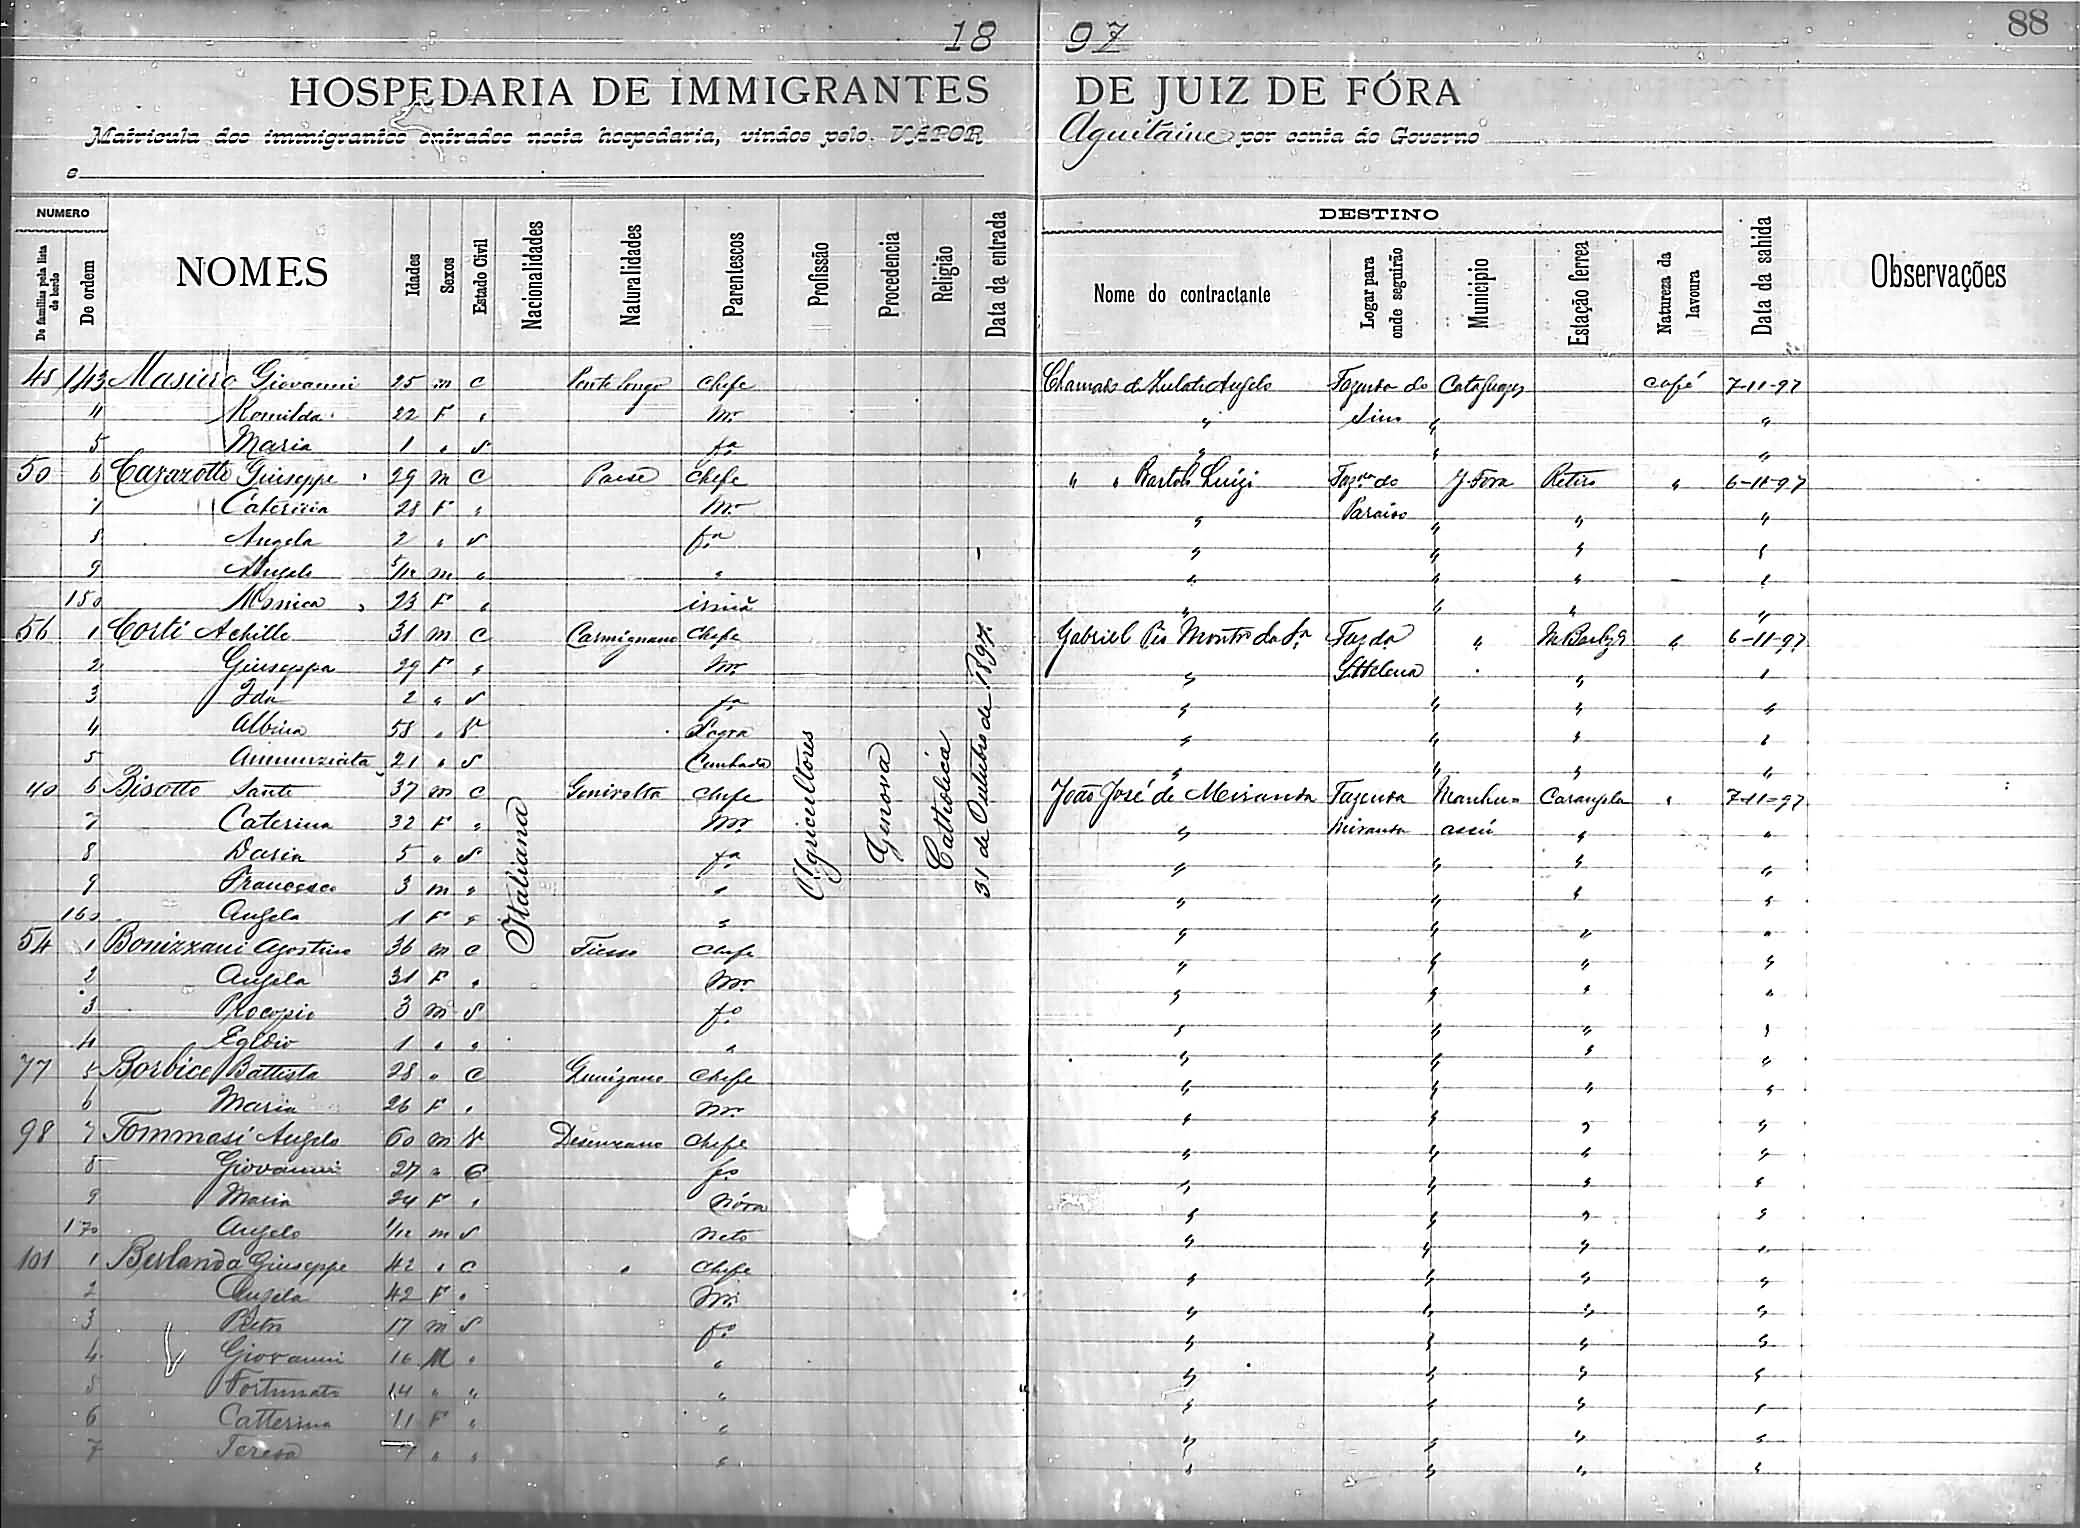 88
18 97
HOSPEDARIA DE IMMIGRANTES DE JUIZ DE FÓRA
Matricula dos immigrantes entrados nesta hospedaria, vindos pelo VAPOR Aquitaine por conta do Governo
e
NUMERO
De familias pela lista de bordo
De ordem
NOMES
Idades
Sexos
Estado Civil
Nacionalidades
Naturalidades
Parentescos
Profissão
Procedencia
Religião
Data da entrada
DESTINO
Nome do contractante
Logar para onde seguirão
Municipio
Estação ferrea
Natureza da lavoura
Data da sahida
Observações
Italiana
Agricultores
Genova
Catholica
31 de Outubro de 1897
143 Masiero Giovanni 25 m C Pontelongo Chefe Angelo Fazenda do Cataguazes café 7-11-97
4 Romilda 22 F " Mer "
5 Maria 1 " S fa " " "
50 6 Cavazotto Giuseppe 29 m C Paese Chefe " " Luigi Fazda do J. Fora Retiro " 6-11-97
7 Caterina 28 F " Mer " Paraiso " " "
8 Angela 2 " S fa " " " "
9 Angelo 5/12 m " " " " " "
150 Monica 23 F " irmã " " " "
56 1 Corti Achille 31 m C Carmignano Chefe Gabriel Pio Faz da " " 6-11-97
2 Giuseppa 29 F " Mer " Sta Helena " "
3 Ida 2 " S fa " " " "
4 Albina 58 " V Sogra " " " "
5 Annunziata 21 " S Cunhada " " " "
40 6 Bisotto Sante 37 m C Chefe João José de Miranda Fazenda Manhu= Carangola " 7-11-97
7 Caterina 32 F " Mer " Miranda assú " "
8 Daria 5 " S fa " " " "
9 Francesco 3 m " " " " " "
160 Angela 1 F " " " " " "
54 1 Bonizzani Agostino 36 m C Fiesso Chefe " " " "
2 Angela 31 F " Mer " " " "
3 Procopio 3 m S fo " " " "
4 Egidio 1 " " " " " " "
77 5 Battista 28 " C Chefe " " " "
6 Maria 26 F " Mer " " " "
98 7 Tommasi Angelo 60 m V Desenzano Chefe " " " "
8 Giovanni 27 " C fo " " " "
9 Maria 24 F " Nóra " " " "
170 Angelo 1/12 m S Neto " " " "
101 1 Berlanda Giuseppe 42 " C " Chefe " " " "
2 Angela 42 F " Mer " " " "
3 Pietro 17 m S fo " " " "
4 Giovanni 16 M " " " " " "
5 Fortunato 14 " " " " " " "
6 Catterina 11 F " " " " " "
7 Teresa 7 " " " " " " "